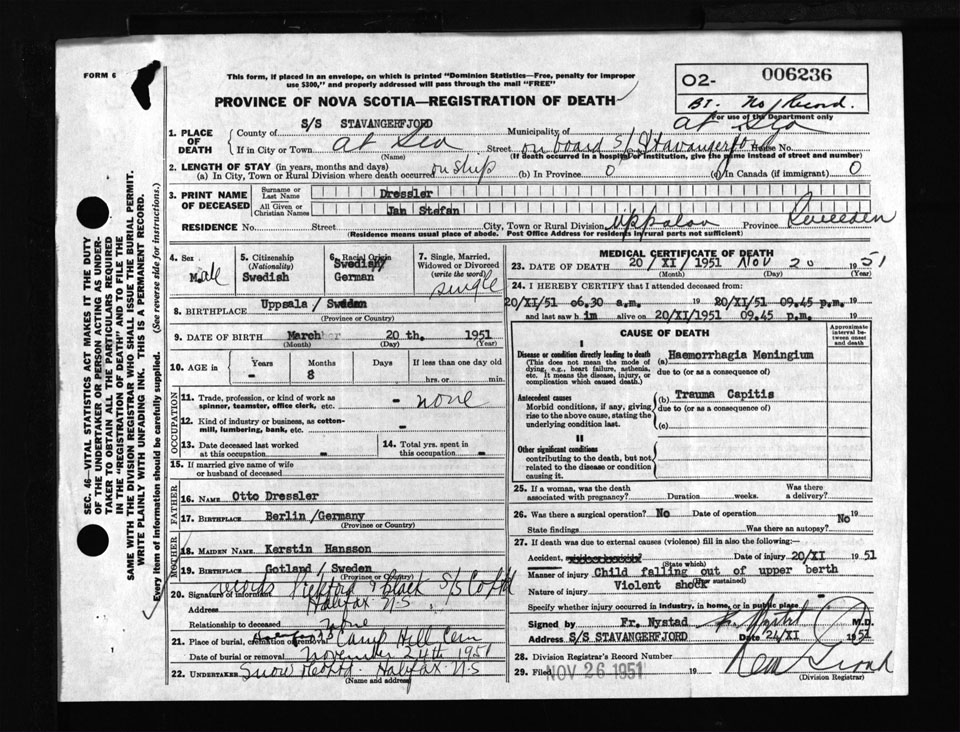 FORM 6
This form, if placed in an envelope, on which is printed "Dominion Statistics—Free, penalty for improper
use $300," and properly addressed will pass through the mail "FREE"
PROVINCE OF NOVA SCOTIA—REGISTRATION OF DEATH
O2- 006236
BT. No/Record.
For use of the Department only
SEC. 46—VITAL STATISTICS ACT MAKES IT THE DUTY
OF THE UNDERTAKER OR PERSON ACTING AS UNDER-
TAKER TO OBTAIN ALL THE PARTICULARS REQUIRED
IN THE "REGISTRATION OF DEATH" AND TO FILE THE
SAME WITH THE DIVISION REGISTRAR WHO SHALL ISSUE THE BURIAL PERMIT.
WRITE PLAINLY WITH UNFADING INK. THIS IS A PERMANENT RECORD.
Every item of Information should be carefully supplied. (See reverse side for instructions.)
S/S STAVANGERFJORD
1. PLACE OF DEATH
County of Municipality of at Sea
If in City or Town at Sea Street on board S/S Stavangerfjord House No.
(Name) (If death occurred in a hospital or institution, give the name instead of street and number)
2. LENGTH OF STAY (in years, months and days)
(a) In City, Town or Rural Division where death occurred on ship (b) In Province 0 (c) In Canada (if immigrant) 0
3. PRINT NAME OF DECEASED
Surname or Last Name Dressler
All Given or Christian Names Jan Stefan
RESIDENCE No. Street City, Town or Rural Division Uppsala Province Sweeden
(Residence means usual place of abode. Post Office Address for residents in rural parts not sufficient)
4. Sex Male
5. Citizenship (Nationality) Swedish
6. Racial Origin Swedish/ German
7. Single, Married, Widowed or Divorced (write the word) single
8. BIRTHPLACE Uppsala / Sweden
(Province or Country)
9. DATE OF BIRTH March 20 th. 1951
(Month) (Day) (Year)
10. AGE in Years - Months 8 Days If less than one day old
hrs. or min.
OCCUPATION
11. Trade, profession, or kind of work as
spinner, teamster, office clerk, etc. - none
12. Kind of industry or business, as cotten-
mill, lumbering, bank, etc. -
13. Date deceased last worked at this occupation -
14. Total yrs. spent in this occupation -
15. If married give name of wife
or husband of deceased
FATHER
16. NAME Otto Dressler
17. BIRTHPLACE Berlin /Germany
(Province or Country)
MOTHER
18. MAIDEN NAME Kerstin Hansson
19. BIRTHPLACE Gotland / Sweden
(Province or Country)
20. Signature of informant Pickford & Black S/S Co Ltd
Address Halifax N.S.
Relationship to deceased None
21. Place of burial, cremation or removal Camp Hill Cem
Date of burial or removal November 24th 1951
22. UNDERTAKER Snow Halifax N.S
(Name and address)
MEDICAL CERTIFICATE OF DEATH
23. DATE OF DEATH 20 /XI /1951 Nov 20 1951
(Month) (Day) (Year)
24. I HEREBY CERTIFY that I attended deceased from:
20/XI/51 06.30 a.m. 19 20/XI/51 09.45 p.m. 19
and last saw him alive on 20/XI/1951 09.45 p.m. 19
CAUSE OF DEATH
Approximate interval between onset and death
I
Disease or condition directly leading to death
(This does not mean the mode of
dying, e.g., heart failure, asthenia,
etc. It means the disease, injury, or
complication which caused death.)
(a) Haemorrhagia Meningium
due to (or as a consequence of)
Antecedent causes
Morbid conditions, if any, giving
rise to the above cause, stating the
underlying condition last.
(b) Trauma Capitis
due to (or as a consequence of)
(c)
II
Other significant conditions
contributing to the death, but not
related to the disease or condition
causing it.
25. If a woman, was the death
associated with pregnancy? Duration weeks. Was there a delivery?
26. Was there a surgical operation? No Date of operation 19
State findings Was there an autopsy? No
27. If death was due to external causes (violence) fill in also the following:
Accident, Date of injury 20/XI 1951
(State which)
Manner of injury Child falling out of upper berth
(How sustained)
Nature of injury Violent shock
Specify whether injury occurred in industry, in home, or in public place
Signed by Fr. Nystad M.D.
Address S/S STAVANGERFJORD Date 24/XI 1951
28. Division Registrar's Record Number
29. Filed NOV 26 1951 19
(Division Registrar)